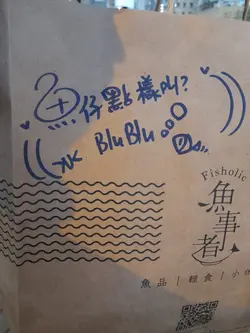 魚仔點樣叫?
BluBlu
Fisholic
魚事者
魚品 | 輕食 | 小